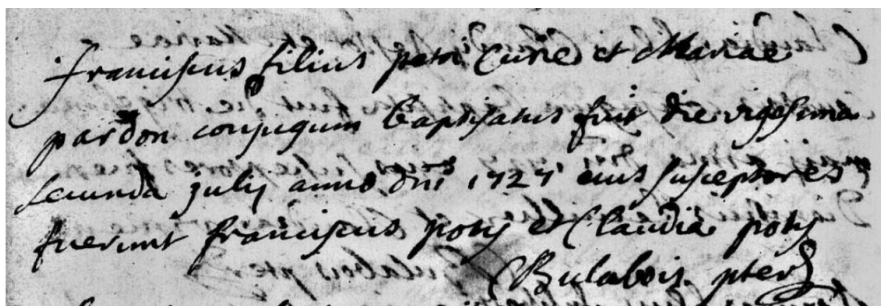 franciscus filius petri Cune et Mariae
pardon conjugum baptisatus fuit die vigesima
secunda julij anno dni 1727 eius susceptores
fuerunt franciscus potij et Claudia potij
Bulabois pter